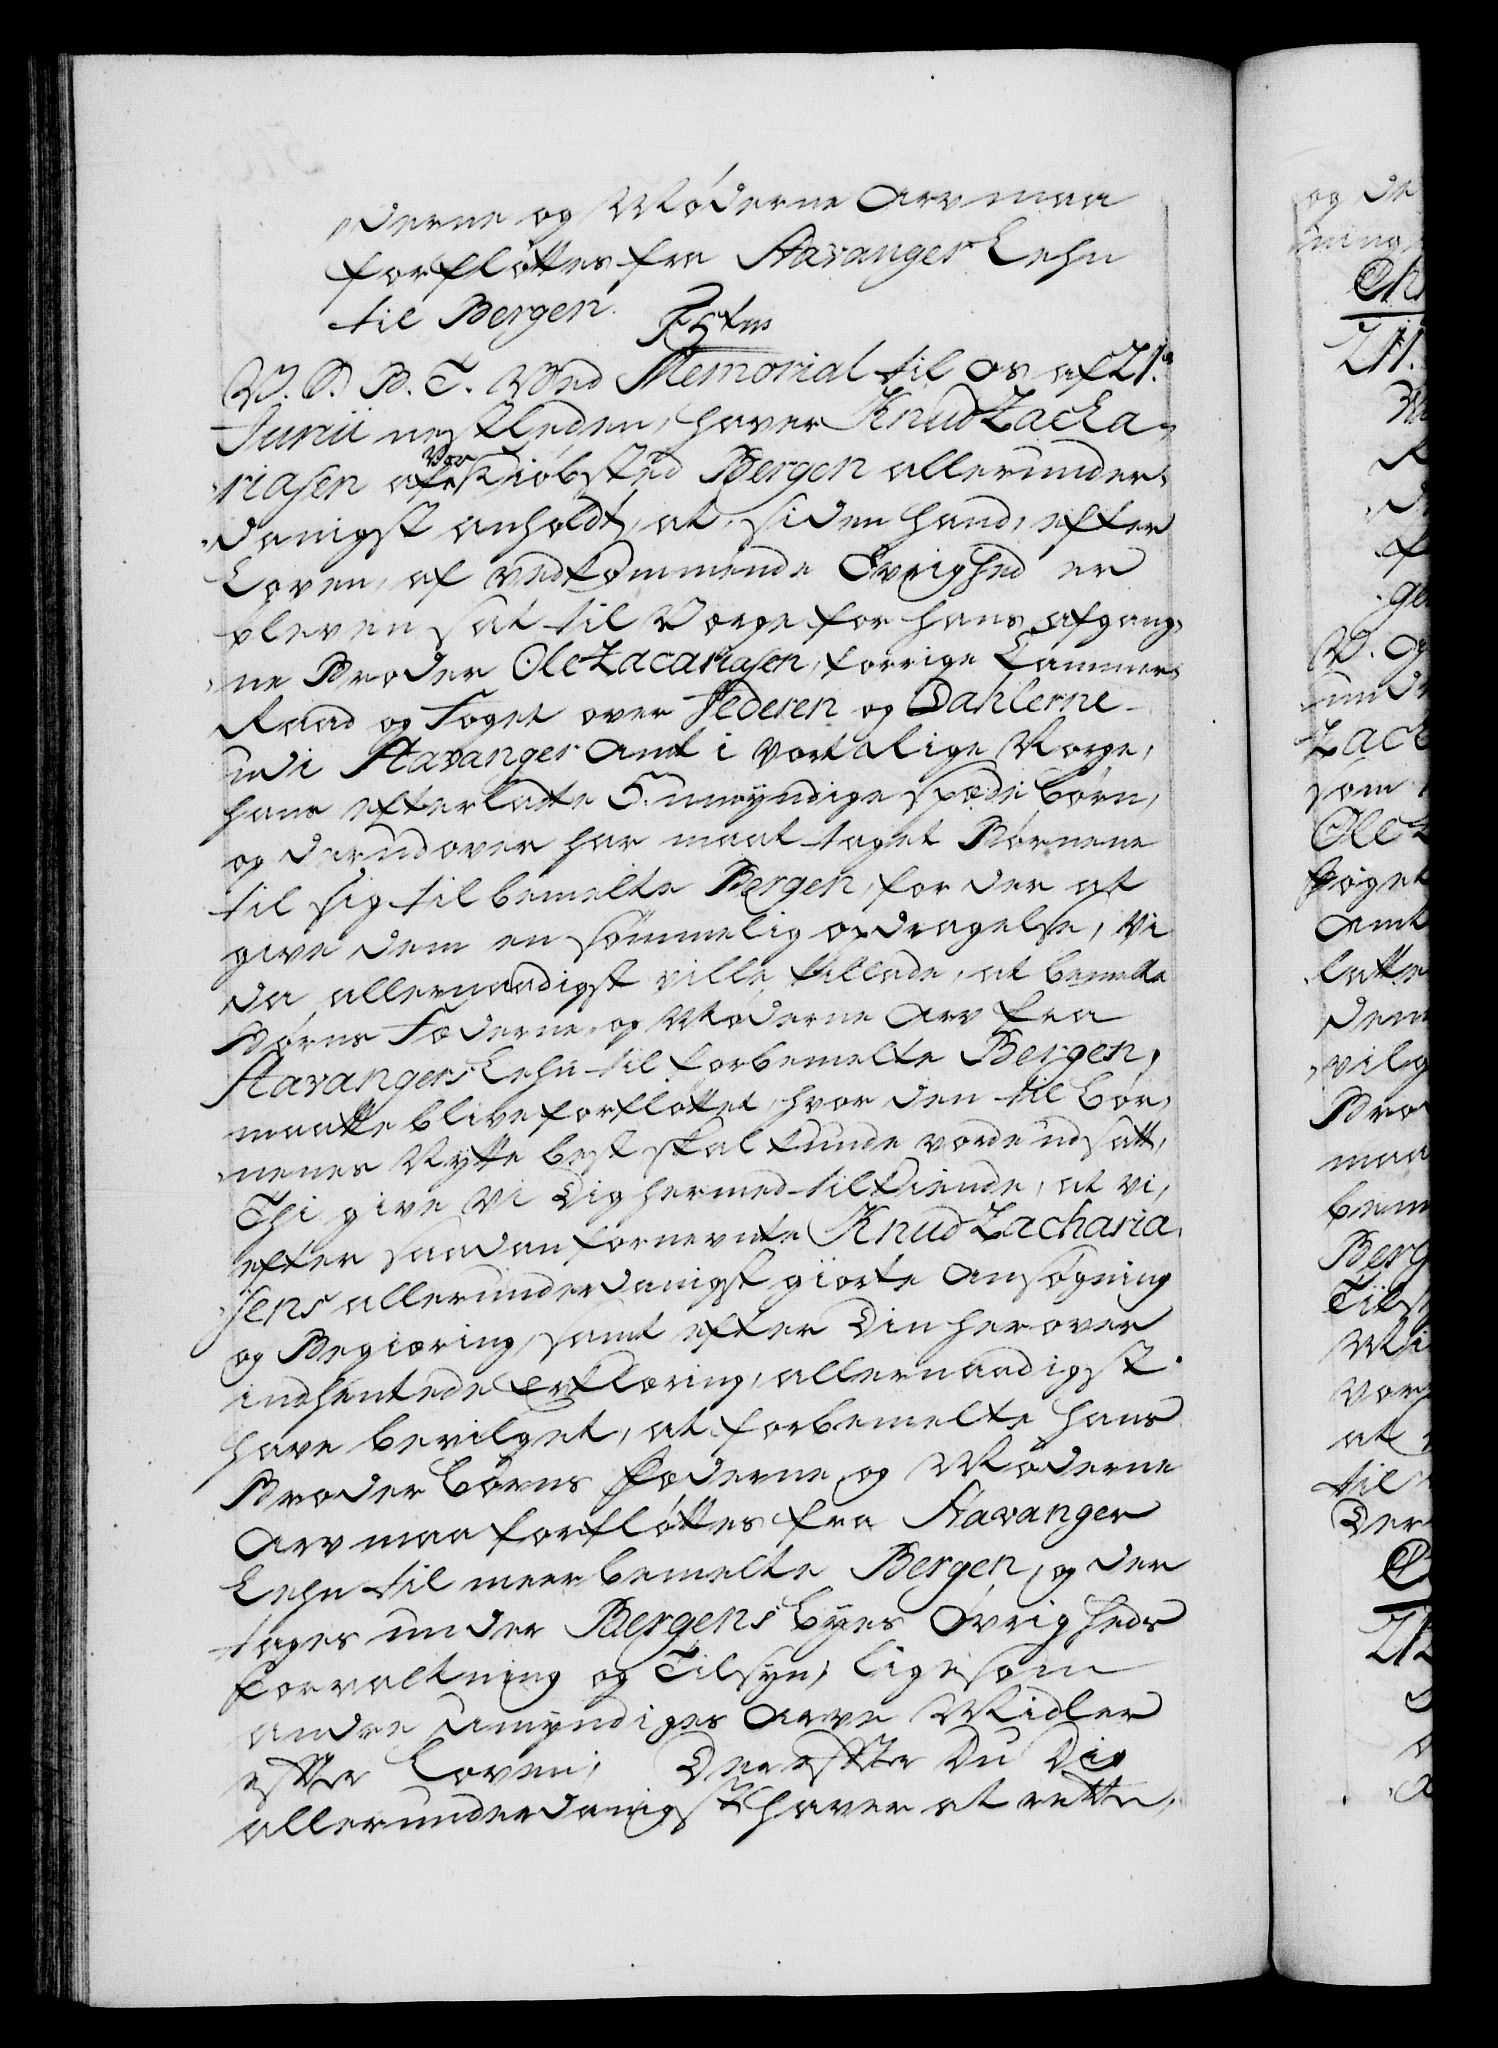 derne og Møderne Arv maa
forfløttes fra Stavanger Lehn
til Bergen.
V. S. B. T. Ved Memorial til os af 21.
Junii nestleden, haver Knud Zacha-
riasen af Vor Kiøbsted Bergen allerunder-
danigst anholdt, at, siden hand, efter
Loven, af vedkommende Øvrighed er
bleven sat til Verge for hans afgang-
ne Broder Ole Zacariasen, forrige Cammer-
Raad og Foget over Jederen og Dahlerne
udi Stavanger Amt i vort Rige Norge,
hans efterladte 5. umyndige spæde børn,
og derudover har maat taget Børnene
til sig til bemelte Bergen, for der at
give dem en sømmelig opdragelse, Vi
da allernaadigst ville tillade, at bemelte
Børns Fæderne og Møderne Arv fra
Stavangers Lehn til forbemelte Bergen,
maatte blive forfløttet, hvor den til bør-
nenes Nytte best skal kunde vorde udsatt,
Thi give Vi Dig hermed tilkiende, at vi,
efter saadan fornevnte Knud Zacharia-
sens allerunderdanigst giorte Ansøgning
og Begiæring, samt efter Din herover
indhentede Erklæring, allernaadigst
have bevilget, at forbemelte hans
Broder børns Fæderne og Møderne
Arv maa forfløttes fra Stavanger
Lehn til meerbemelte Bergen, og der
tages under Bergens byes Øvrigheds
Forvaltning og Tilsyn, ligesom
andre Umyndiges Arve Midler
efter Loven; Derefter Du Dig
allerunderdanigst haver at rette,